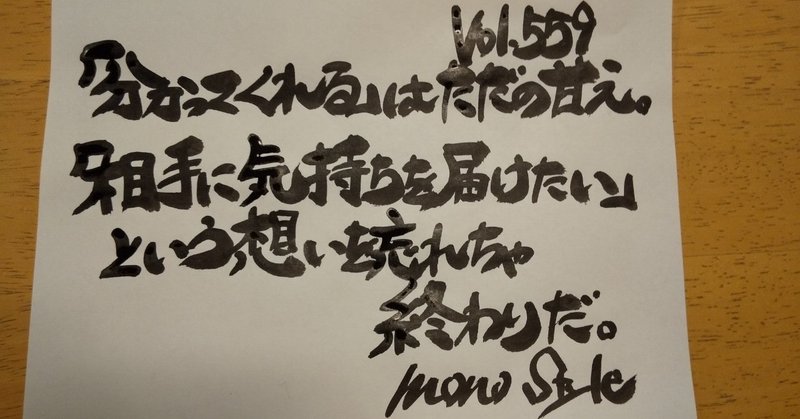 Vol.559
「分かってくれる」はただの甘え。
「相手に気持ちを届けたい」
という想いを忘れちゃ
終わりだ。
mono Style